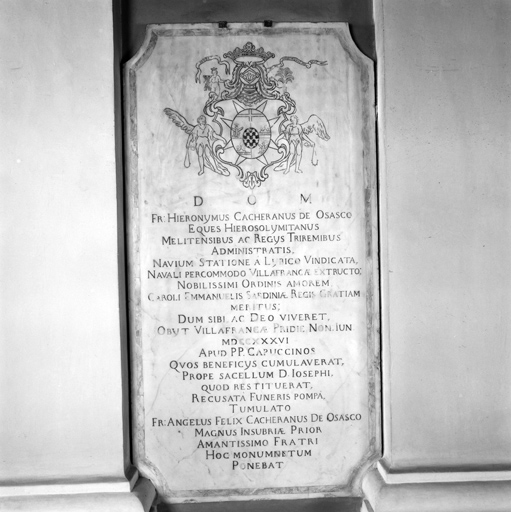 D O M
FR: HIERONYMUS CACHERANUS DE OSASCO
EQUES HIEROSOLYMITANUS
MELITENSIBUS AC REGIJS TRIREMIBUS
ADMINISTRATIS,
NAVIUM STATIONE A LYBICO VINDICATA,
NAVALI PERCOMMODO VILLAFRANCÆ EXTRUCTO;
NOBILISSIMI ORDINIS AMOREM
CAROLI EMMANUELIS SARDINIÆ REGIS GRATIAM
MERITUS;
DUM SIBI, AC DEO VIVERET,
OBIJT VILLAFRANCÆ PRIDIE NON. IUN
MDCCXXXVI
APUD P.P. CAPUCCINOS
QVOS BENEFICIJS CUMULAVERAT,
PROPE SACELLUM D. IOSEPHI,
QUOD RESTITUERAT,
RECUSATA FUNERIS POMPA,
TUMULATO
FR: ANGELUS FELIX CACHERANUS DE OSASCO
MAGNUS INSUBRIÆ PRIOR
AMANTISSIMO FRATRI
HOC MONUMNETUM
PONEBAT